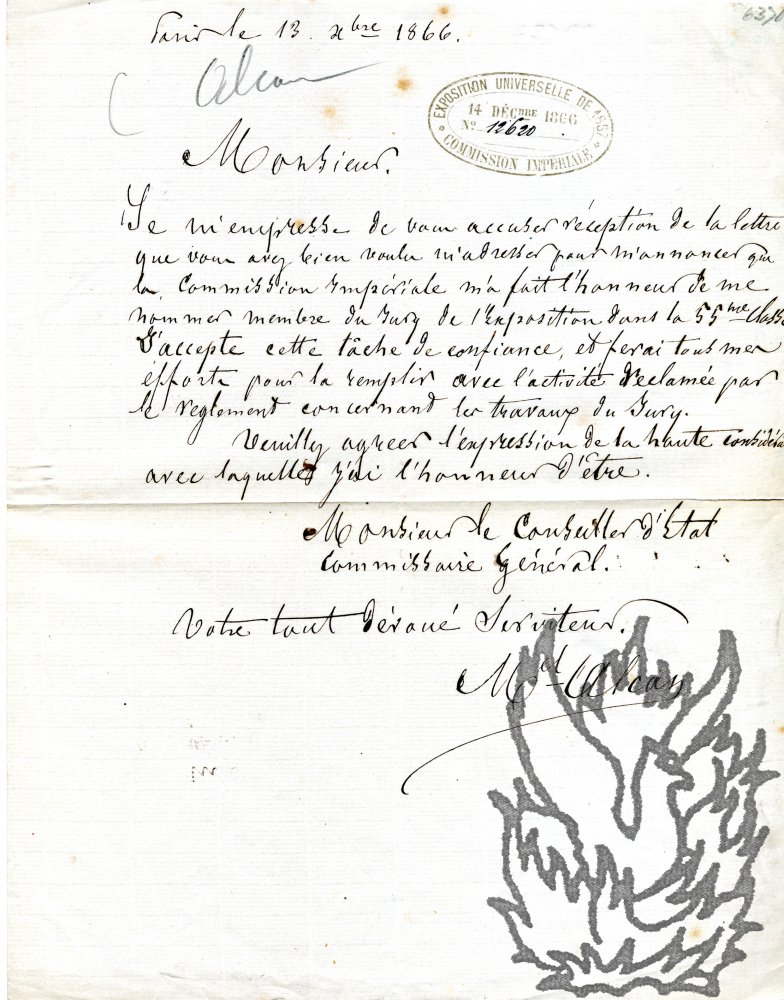 Paris le 13. xbre 1866.
Alcan
EXPOSITION UNIVERSELLE DE 1867
14 DÉCBRE 1866
No. 12620
COMMISSION IMPÉRIALE
Monsieur.
Je m'empresse de vous accuser réception de la lettre
que vous avez bien voulu m'adresser pour m'annoncer que
la Commission Impériale m'a fait l'honneur de me
nommer membre du Jury de l'Exposition dans la 55me Classe
J'accepte cette tâche de confiance, et ferai tous mes
efforts pour la remplir avec l'activité réclamée par
le règlement concernant les travaux du Jury.
Veuillez agréer l'expression de la haute considéra
avec laquelle j'ai l'honneur d'être.
Monsieur le Conseiller d'Etat
Commissaire Général.
Votre tout dévoué Serviteur.
Mel Alcan